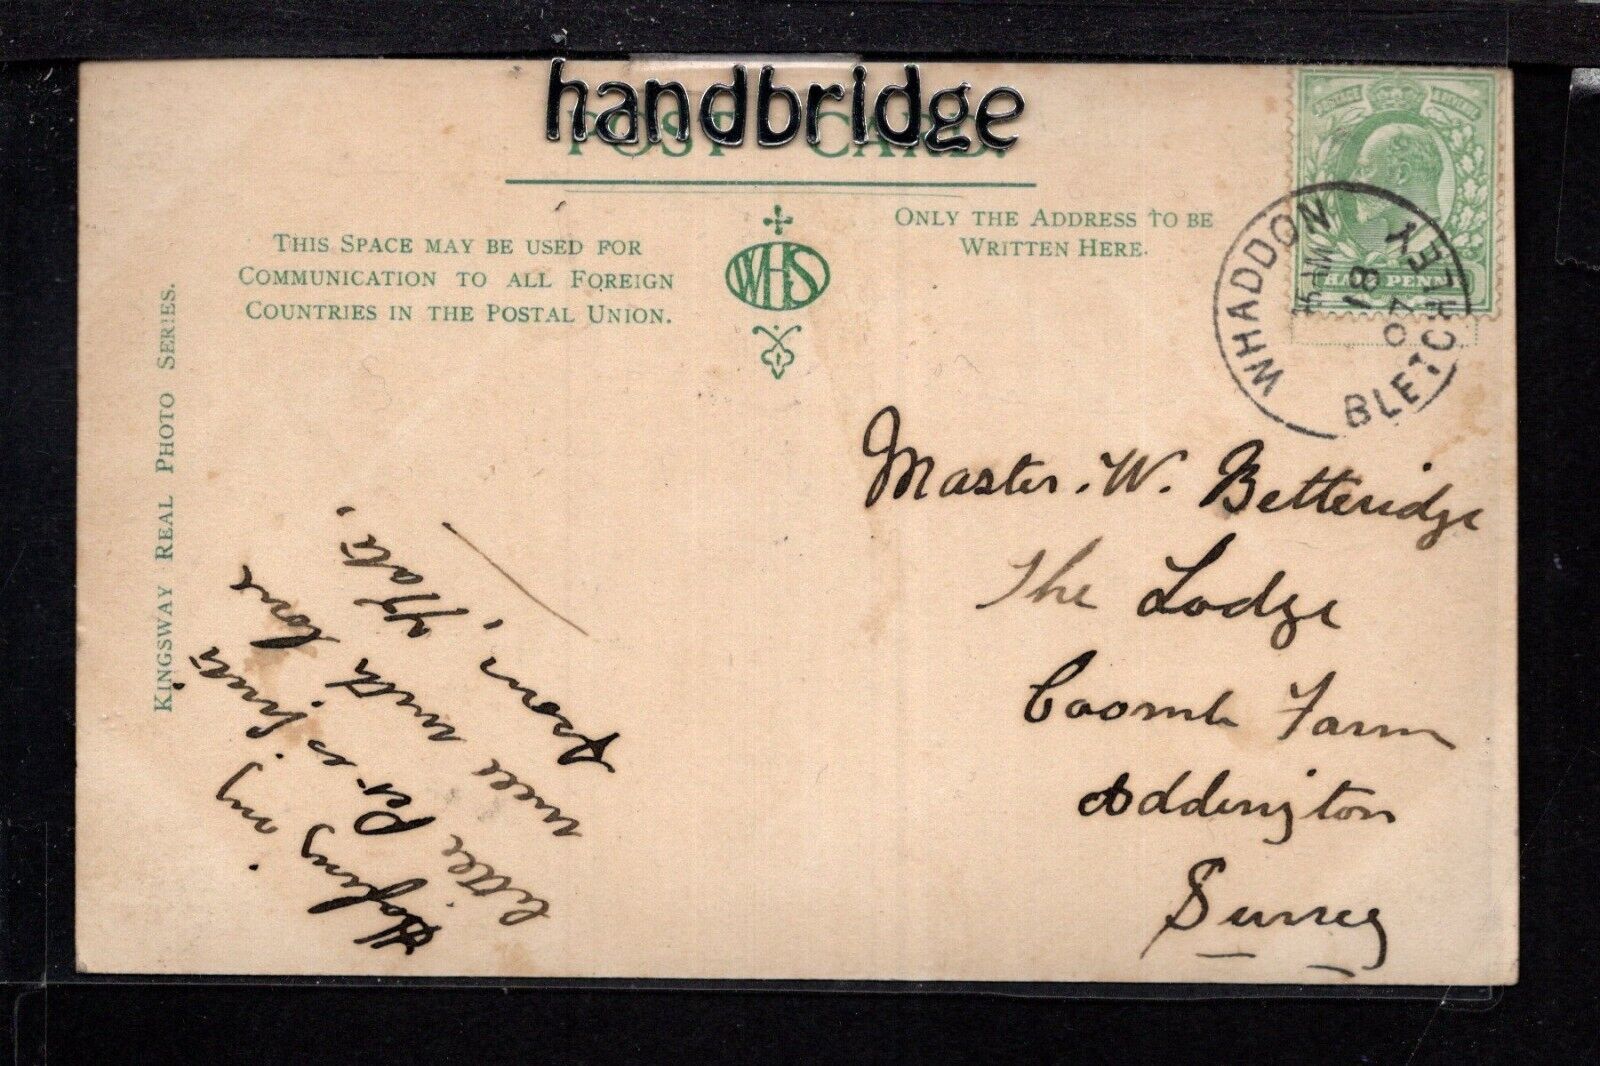 handbridge
POST CARD.
THIS SPACE MAY BE USED FOR
COMMUNICATION TO ALL FOREIGN
COUNTRIES IN THE POSTAL UNION.
WHS
ONLY THE ADDRESS TO BE
WRITTEN HERE.
KINGSWAY REAL PHOTO SERIES.
POSTAGE & REVENUE
HALF PENNY
WHADDON
BLETCHLEY
AM
18
07
Master. W. Betteridge
The Lodge
Coomb Farm
Addington
Surrey
Hoping my
little Pet is
well with love
from,